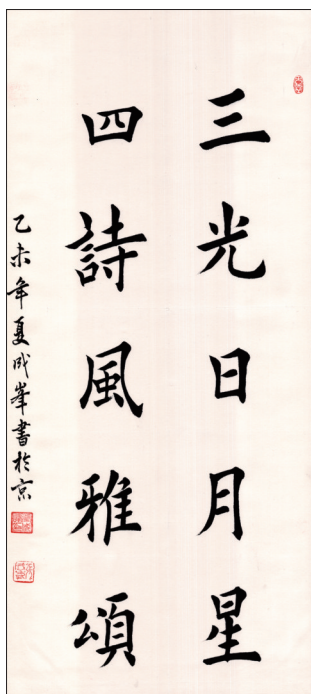 三光日月星
四詩風雅頌
乙未年夏成峯書於京